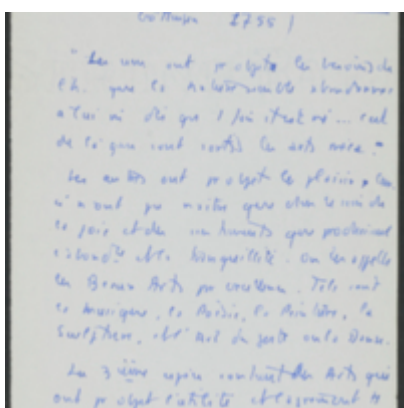 1755)
"Les uns ont pr objet les besoins de
l'h. que la nature semble abandonner
à lui dès que 1 fois
de là que sont sortis les arts
Les autres ont pr objet le plaisir,
n'ont pu naître que dans le sein de
la joie et des sentiments que produisent
l'abondce et la tranquillité. On les appelle
les Beaux Arts par excellence. Tels sont
la musique, la Poésie, la Peinture, la
Sculpture, et l'Art du geste ou la Danse.
La 3ième espèce contient les Arts qui
ont pr objet l'utilité et l'agrément